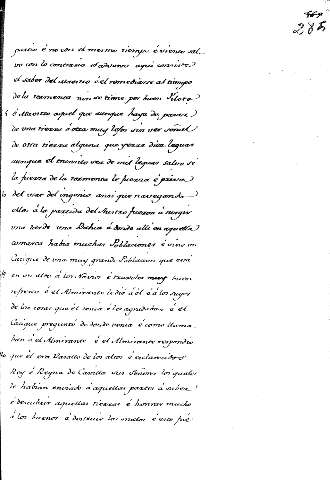 285
puerto é no con el mesmo tiempo é viento sal-
vo con lo contrario é adversas aqui consiste
el saber del Maestro é el remediarse al tiempo
de la tormenta nin se tiene por buen Piloto
é Maestro aquel que aunque haya de pasar
de una tierra á otra muy lejos sin ver señal
de otra tierra alguna que yerra diez leguas
aunque el transito sea de mil leguas salvo si
la fuerza de la tormenta lo fuerza é priva
del usar del ingenio ansi que navegando
ellos á la partida del Austro fueron á surgir
una tarde una Bahia á donde alli en aquella
comarca habia muchas Poblaciones é vino un
Cacique de una muy grande Poblacion que está
en un alto á los Navios é trajoles muy buen
refresco é el Almirante le dió á él é á los suyos
de las cosas que él tenia é les agradaban é el
Cacique preguntó de donde venia é como llama-
ban á el Almirante é el Almirante respondió
que él era Vasallo de los altos é esclarecidos
Rey é Reyna de Castilla sus Señores los quales
le habian enviado á aquellas partes á saber
é descubrir aquellas tierras é honrar mucho
á los buenos é destruir los malos é esto fué